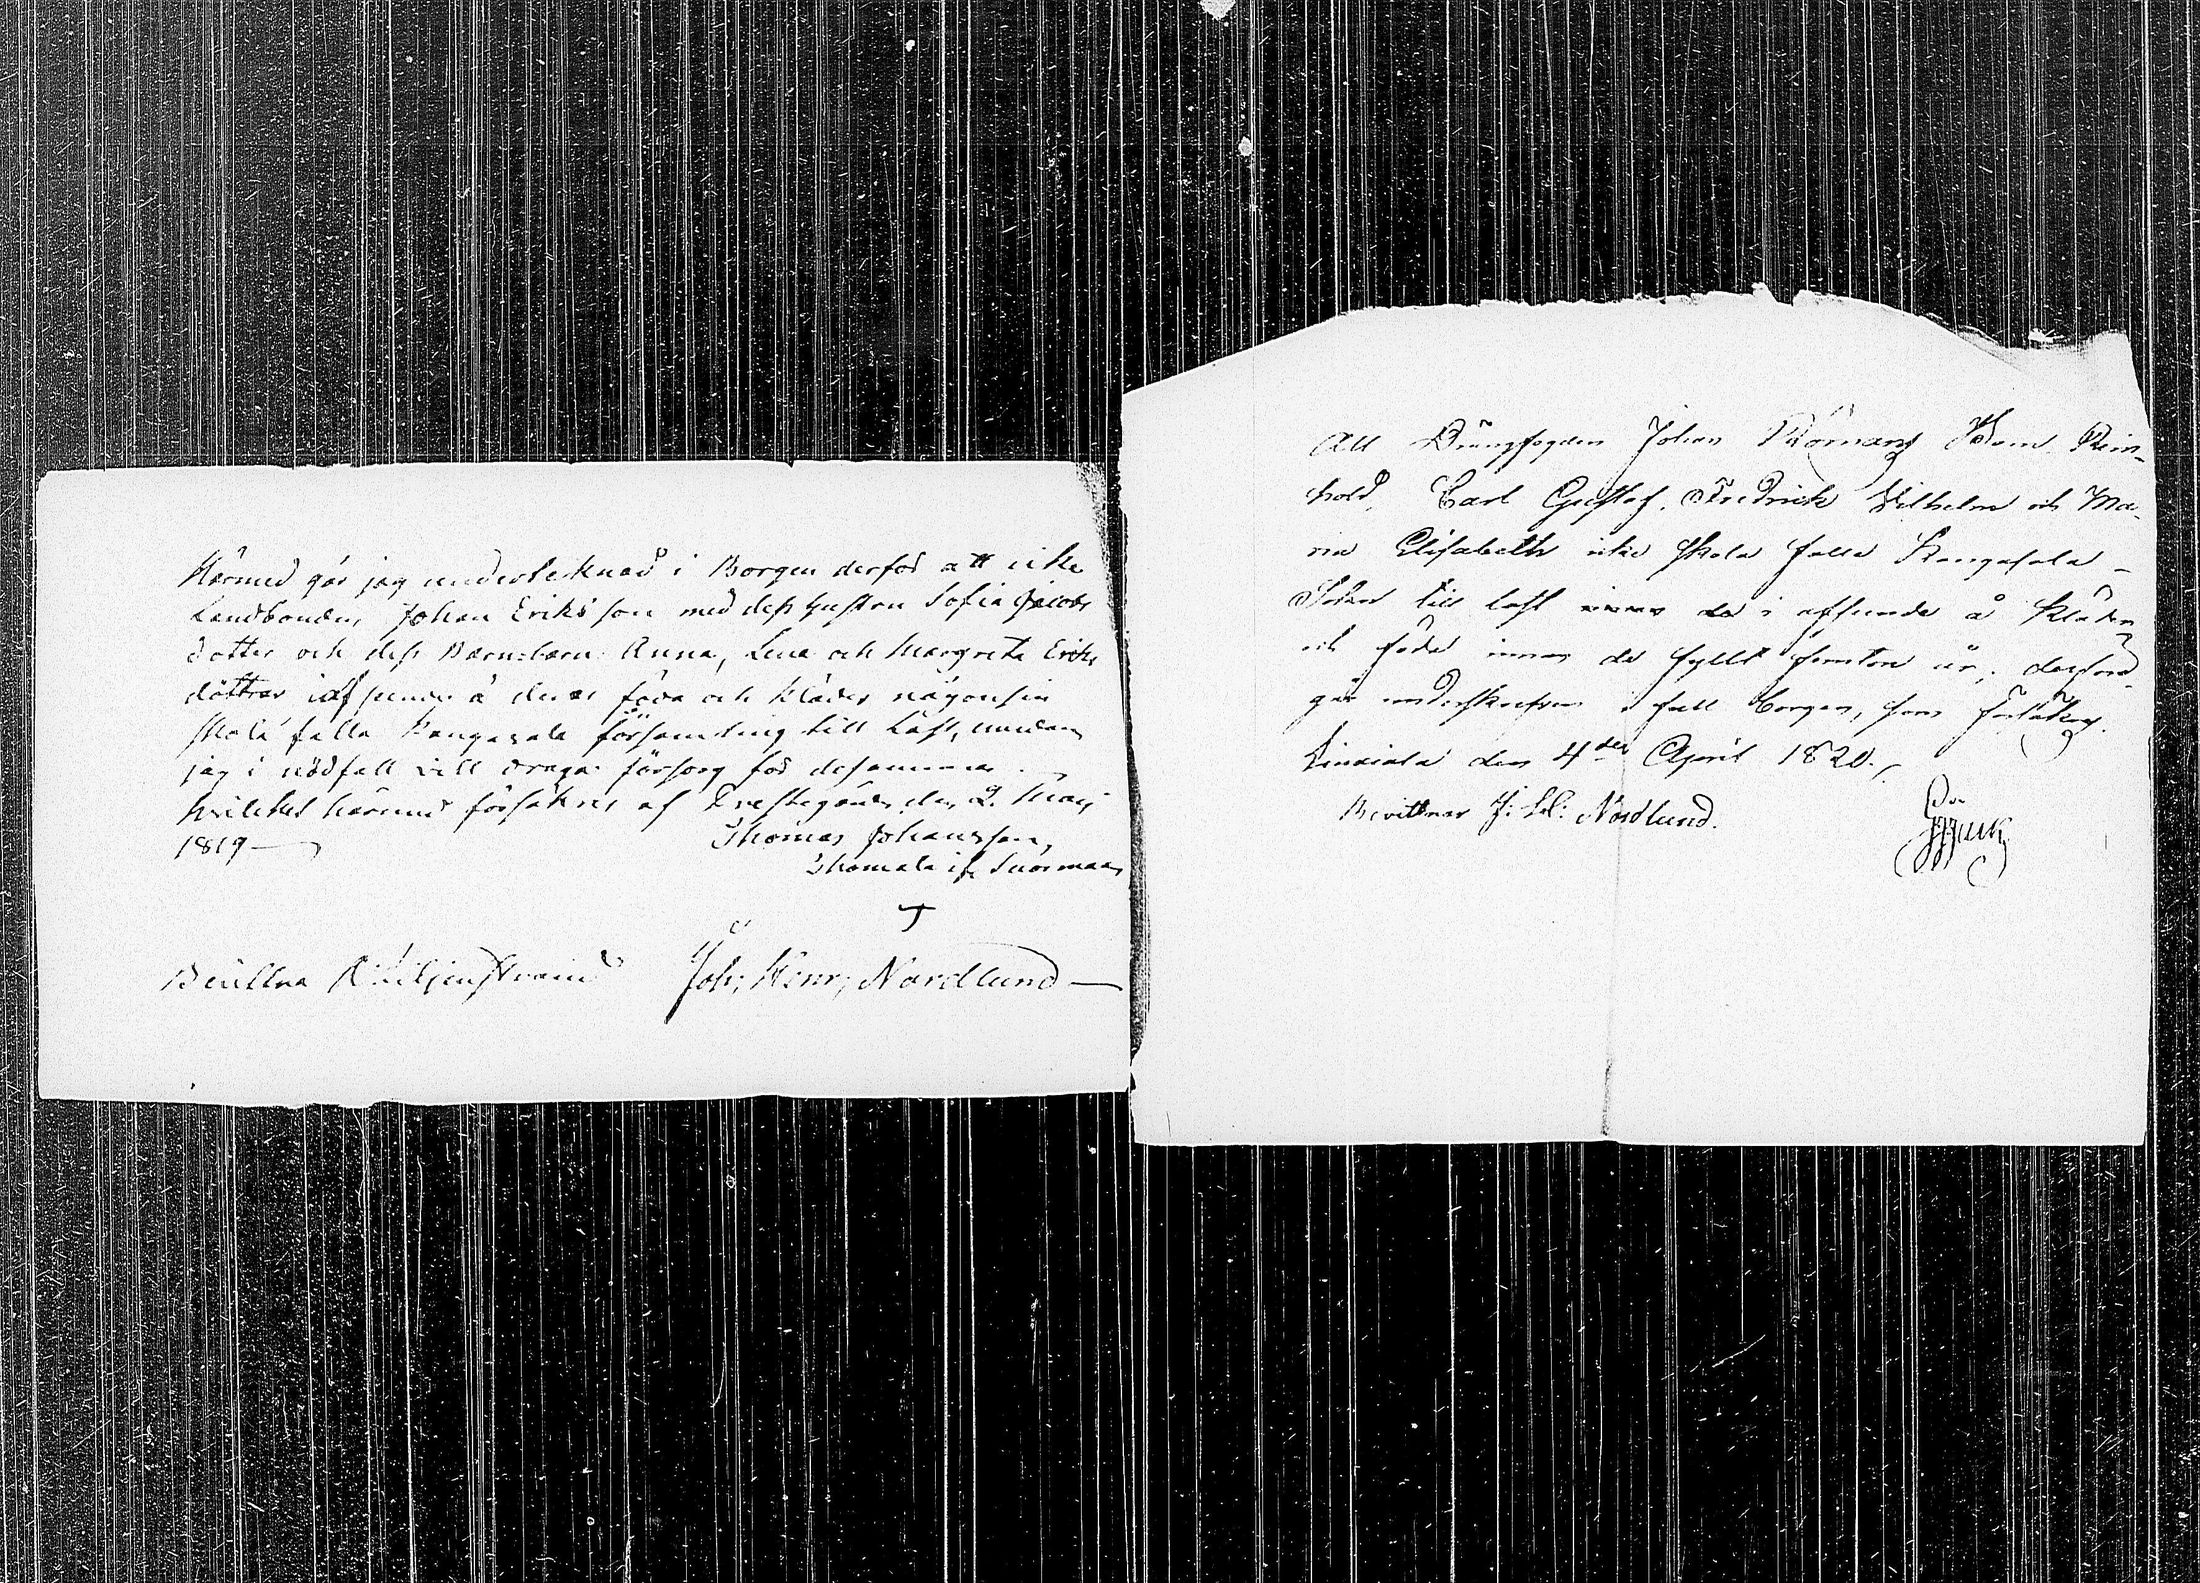 Härmed går jag undertecknad i Borgen derför att icke
Landbonden Johan Eriksson med dess hustru Sofia Jacobs
dotter och dess Barnebarn Anna, Lena och Margreta Eriks
döttrar i afseende å deras föda och kläder någonsin
skola falla Kangasala församling till Last, undan
jag i nödfall vill draga försorg för desamma
hvilket härmed försäkras af Prestegården den 2. Maij
1819
Thomas Johansson,
Thomala if. Suormaa
Bevittna Liljenstrand Joh: Henr: Nordlund
Att Drängfogden Johan Römans Barn Rein-
hold, Carl Gustaf, Fredrick Vilhelm och Ma-
ria Elisabeth icke skola falla Kangasala
Soken till last i afseende å Kläder
och föda innan de fyllt femton år, derföre
går underskrefven i full borgen, som försäkras.
Liuxiala den 4de April 1820.
Bevittnar J: H: Nordlund.